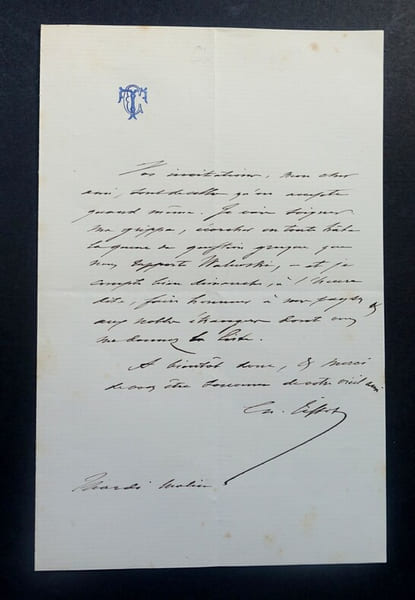 Vos invitations, mon cher
ami, sont de celles qu'on accepte
quand même. Je vais soigner
ma grippe, en toute hâte
la queue de question grecque que
nous rapporte Walewski, et je
compte bien dimanche, à l'heure
dite, faire honneur à vos &
aux nobles étrangers dont vous
me donnez la liste.
A bientôt donc, & merci
de vous être souvenu de votre vieil ami
Ch.
Mardi matin